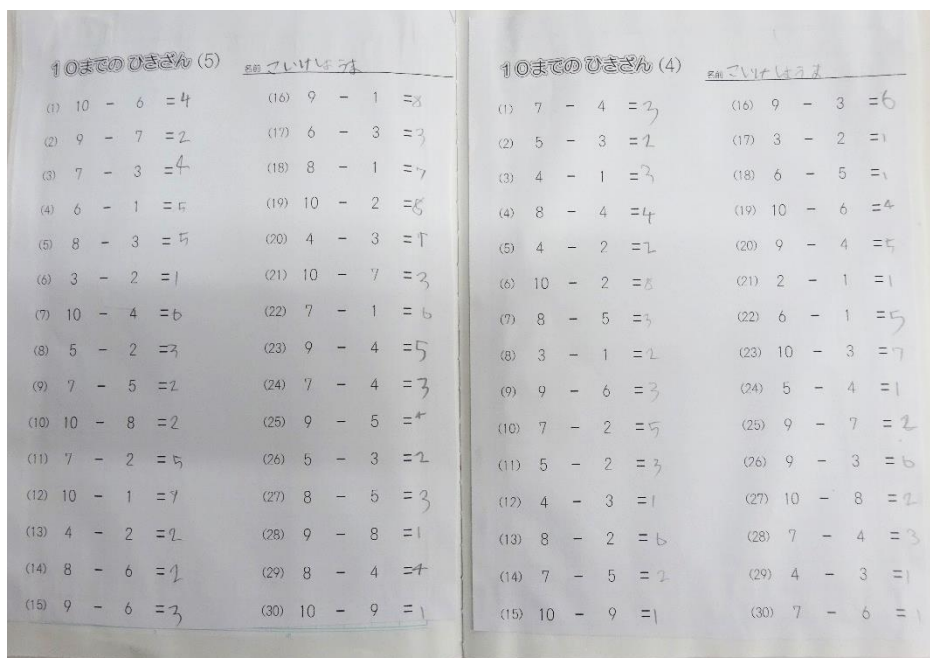 10までの ひきざん (5)
名前 こいけしょうま
(1) 10 - 6 =4
(2) 9 - 7 =2
(3) 7 - 3 =4
(4) 6 - 1 =5
(5) 8 - 3 =5
(6) 3 - 2 =1
(7) 10 - 4 =6
(8) 5 - 2 =3
(9) 7 - 5 =2
(10) 10 - 8 =2
(11) 7 - 2 =5
(12) 10 - 1 =9
(13) 4 - 2 =2
(14) 8 - 6 =2
(15) 9 - 6 =3
(16) 9 - 1 =8
(17) 6 - 3 =3
(18) 8 - 1 =7
(19) 10 - 2 =8
(20) 4 - 3 =1
(21) 10 - 7 =3
(22) 7 - 1 =6
(23) 9 - 4 =5
(24) 7 - 4 =3
(25) 9 - 5 =4
(26) 5 - 3 =2
(27) 8 - 5 =3
(28) 9 - 8 =1
(29) 8 - 4 =4
(30) 10 - 9 =1
10までの ひきざん (4)
名前 こいけしょうま
(1) 7 - 4 =3
(2) 5 - 3 =2
(3) 4 - 1 =3
(4) 8 - 4 =4
(5) 4 - 2 =2
(6) 10 - 2 =8
(7) 8 - 5 =3
(8) 3 - 1 =2
(9) 9 - 6 =3
(10) 7 - 2 =5
(11) 5 - 2 =3
(12) 4 - 3 =1
(13) 8 - 2 =6
(14) 7 - 5 =2
(15) 10 - 9 =1
(16) 9 - 3 =6
(17) 3 - 2 =1
(18) 6 - 5 =1
(19) 10 - 6 =4
(20) 9 - 4 =5
(21) 2 - 1 =1
(22) 6 - 1 =5
(23) 10 - 3 =7
(24) 5 - 4 =1
(25) 9 - 7 =2
(26) 9 - 3 =6
(27) 10 - 8 =2
(28) 7 - 4 =3
(29) 4 - 3 =1
(30) 7 - 6 =1